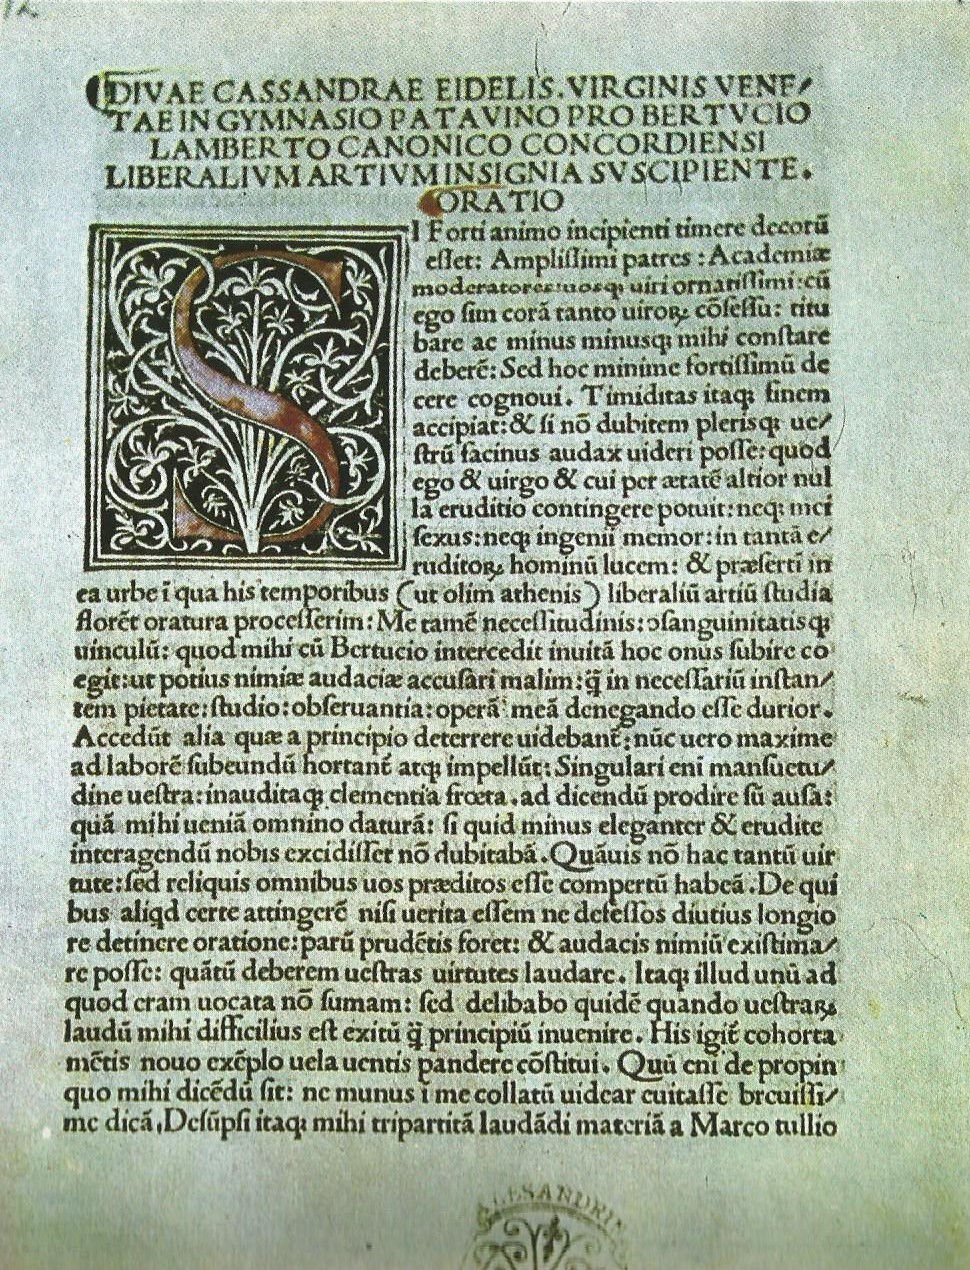 DIVAE CASSANDRAE FIDELIS. VIRGINIS VENE/
TAE IN GYMNASIO PATAVINO PRO BERTVCIO
LAMBERTO CANONICO CONCORDIENSI
LIBERALIVM ARTIVM INSIGNIA SVSCIPIENTE.
ORATIO
SI Forti animo incipienti timere decorū
eſſet: Ampliſſimi patres: Academiæ
moderatores: uosq; uiri ornatiſſimi: cū
ego ſim corā tanto uiroꝝ cōſeſſu: titu
bare ac minus minusq; mihi conſtare
deberē: Sed hoc minime fortiſſimū de
cere cognoui. Timiditas itaq; finem
accipiat: & ſi nō dubitem plerisq; ue/
ſtrū facinus audax uideri poſſe: quod
ego & uirgo & cui per ætatē altior nul
la eruditio contingere potuit: neq; mei
ſexus: neq; ingenii memor: in tantā e/
ruditoꝝ hominū lucem: & præſerti in
ea urbe ī qua his temporibus (ut olim athenis) liberaliū artiū ſtudia
florēt oratura proceſſerim: Me tamē neceſſitudinis: ↄſanguinitatisq;
uinculū: quod mihi cū Bertucio intercedit inuitā hoc onus ſubire co
egit: ut potius nimiæ audaciæ accuſari malim: q̄ in neceſſariū inſtan/
tem pietate: ſtudio: obſeruantia: operā meā denegando eſſe durior.
Accedūt alia quæ a principio deterrere uidebant̄: nūc uero maxime
ad laborē ſubeundū hortant̄ atq; impellūt: Singulari eni manſuetu/
dine ueſtra: inauditaq; clementia frœta. ad dicendū prodire ſū auſa:
quā mihi ueniā omnino daturā: ſi quid minus eleganter & erudite
interagendū nobis excidiſſet nō dubitabā. Quāuis nō hac tantū uir
tute: ſed reliquis omnibus uos præditos eſſe compertū habeā. De qui
bus aliqd certe attingerē niſi uerita eſſem ne defeſſos diutius longio
re detinere oratione: parū prudētis foret: & audacis nimiū exiſtima/
re poſſe: quātū deberem ueſtras uirtutes laudare. Itaq; illud unū ad
quod eram uocata nō ſumam: ſed delibabo quidē quando ueſtraꝝ
laudū mihi difficilius eſt exitū q̄ principiū inuenire. His igit̄ cohorta
mētis nouo exēplo uela uentis pandere cōſtitui. Quū eni de propin
quo mihi dicēdū ſit: ne munus ī me collatū uidear euitaſſe breuiſſi/
me dicā. Deſūpſi itaq; mihi tripartitā laudādi materiā a Marco tullio